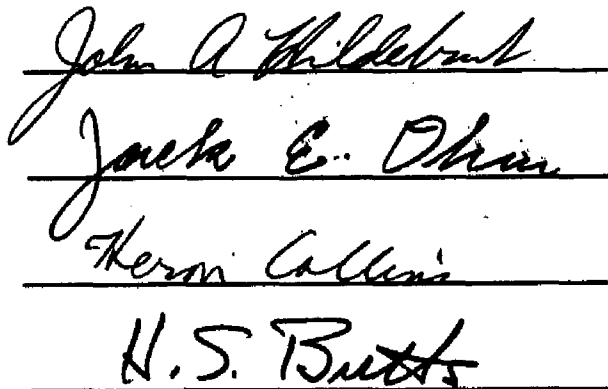 John A Hildebrant
Jack E. Ohm
Heron Collins
H. S. Butts